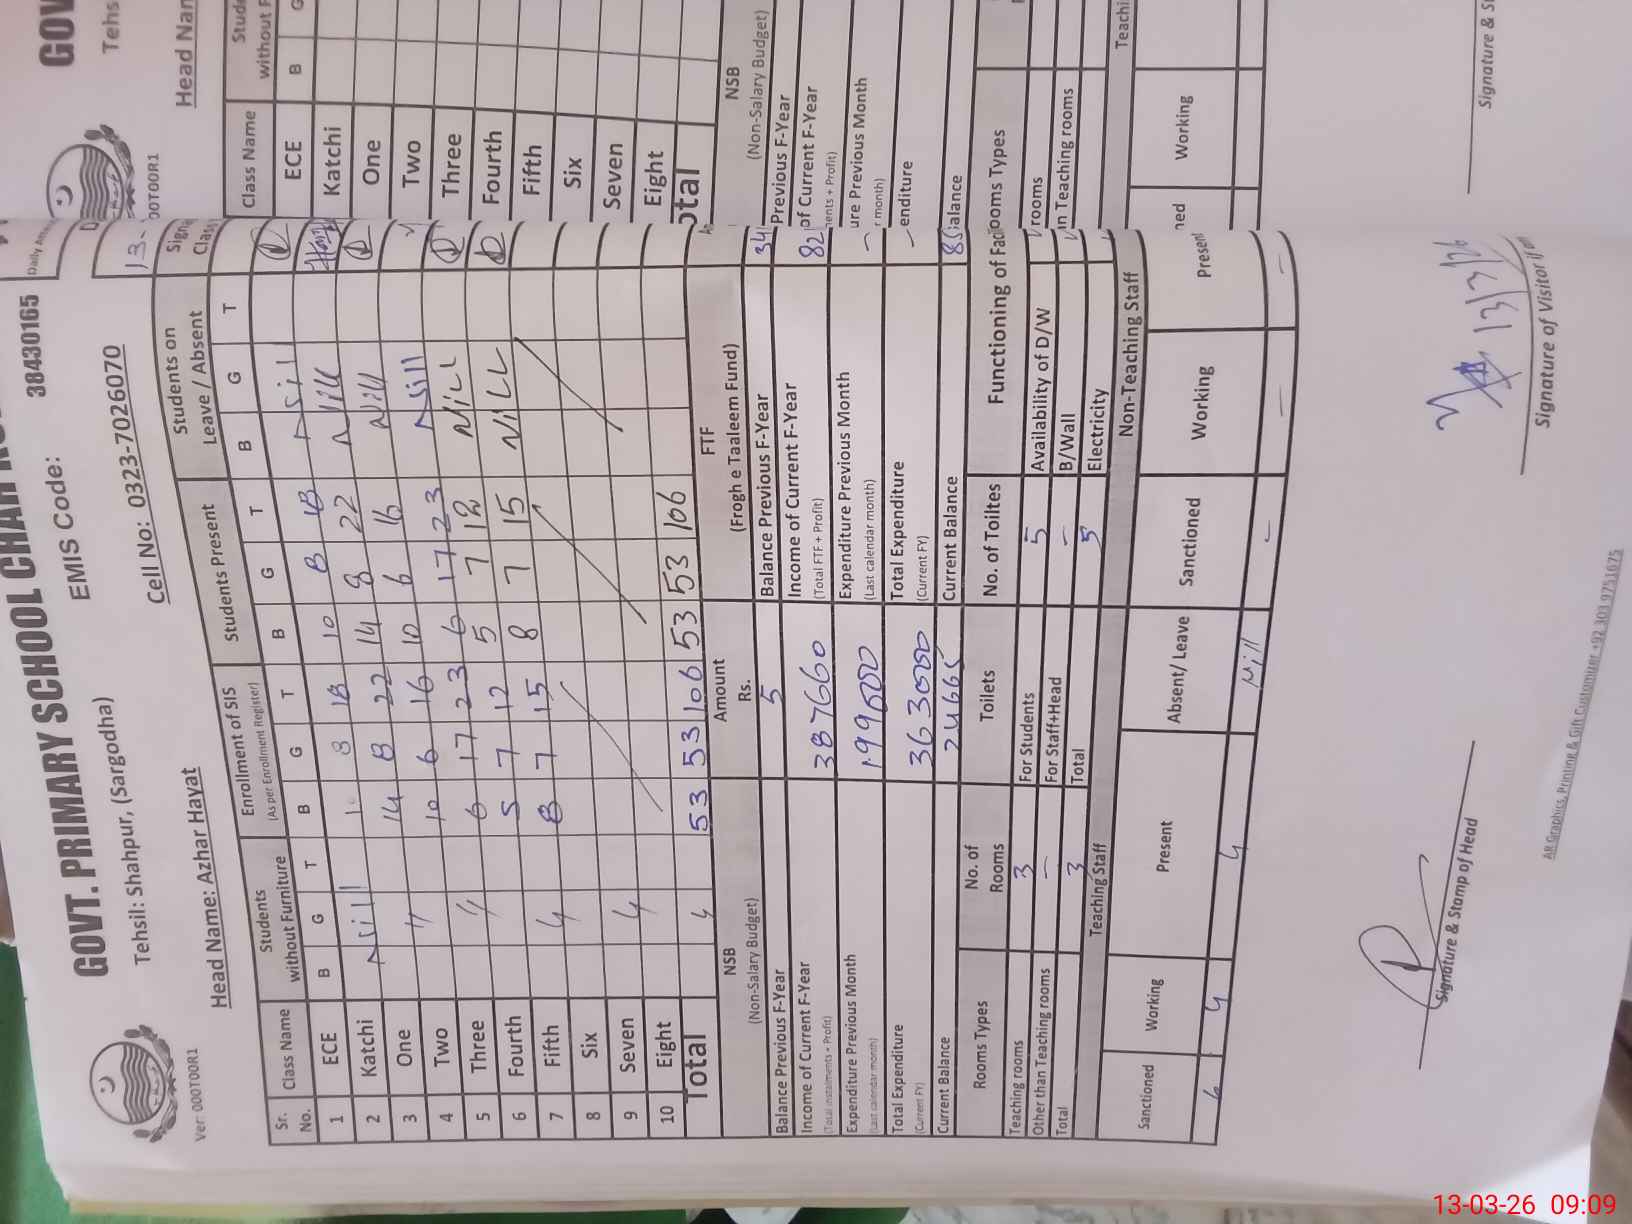 GOVT. PRIMARY SCHOOL CHAH
Tehsil: Shahpur, (Sargodha) EMIS Code: 38430165
Ver: 000TOOR1
Head Name: Azhar Hayat Cell No: 0323-7026070
13-
Sr. No. Class Name Students without Furniture Enrollment of SIS (As per Enrollment Register) Students Present Students on Leave / Absent
B G T B G T B G T B G T
1 ECE 8 18 10 8 18 Nill
2 Katchi Nill 14 8 22 14 8 22 Nill
3 One " 10 6 16 10 6 16 Nill
4 Two 6 17 23 6 17 23 Nill
5 Three " 5 7 12 5 7 12 NiLL
6 Fourth 8 7 15 8 7 15 NiLL
7 Fifth
8 Six
9 Seven
10 Eight
Total 53 53 106 53 53 106
NSB (Non-Salary Budget) Amount Rs. FTF (Frogh e Taaleem Fund)
Balance Previous F-Year 5 Balance Previous F-Year 34
Income of Current F-Year (Total instalments + Profit) 387660 Income of Current F-Year (Total FTF + Profit) 82
Expenditure Previous Month (Last calendar month) 199500 Expenditure Previous Month (Last calendar month) -
Total Expenditure (Current FY) 363000 Total Expenditure (Current FY) -
Current Balance 24665 Current Balance 85
Rooms Types No. of Rooms Toilets No. of Toiltes Functioning of Fac
Teaching rooms 3 For Students 5 Availability of D/W
Other than Teaching rooms - For Staff+Head - B/Wall
Total 3 Total 5 Electricity
Teaching Staff Non-Teaching Staff
Sanctioned Working Present Absent/ Leave Sanctioned Working Present
4 4 Nill - - -
13/3/26
Signature & Stamp of Head Signature of Visitor if
AR Graphics, Printing & Gift Customizer +92 303 9751675
GOV
Tehs
OOTOOR1
Head Nan
Class Name
Stude
without F
B G
ECE
Katchi
One
Two
Three
Fourth
Fifth
Six
Seven
Eight
otal
NSB
(Non-Salary Budget)
Previous F-Year
of Current F-Year
ments + Profit)
ure Previous Month
month)
enditure
alance
ooms Types
rooms
n Teaching rooms
Teachi
Working
Signature & St
13-03-26 09:09